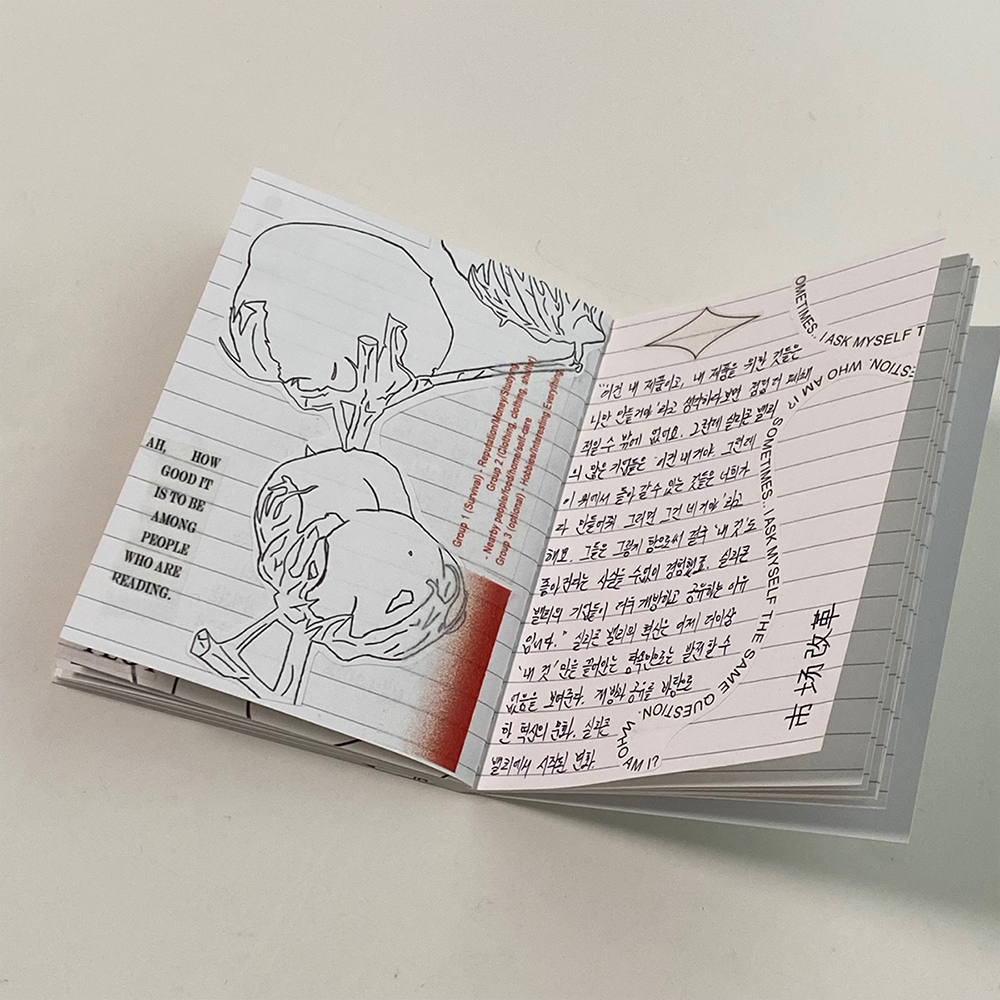 AH, HOW
GOOD IT
IS TO BE
AMONG
PEOPLE
WHO ARE
READING.
Group 1 (Survival) - Reputation/Money/Studying
Group 2 (Clothing, clothing, shelter)
- Nearby people/food/home/self-care
Group 3 (optional) - Hobbies/Interesting Everything
"이건 내 제품이고, 내 제품을 위한 것들은
나만 만들거야'라고 생각하다보면 점점 더 폐쇄
적일 수 밖에 없어요. 그런데 실리콘 밸리
의 많은 기업들은 '이건 내거야. 그런데
이 위에서 돌아갈 수 있는 것들은 너희가
다 만들어줘. 그러면 그건 네 거야'라고
해요. 그들은 그렇게 함으로써 결국 '내 것'도
좋아진다는 사실을 수없이 경험했고, 실리콘
밸리의 기업들이 더욱 개방하고 공유하는 이유
입니다." 실리콘 밸리의 혁신은 이제 더이상
'내 것'만을 끌어안는 방식만으로는 발전할 수
없음을 보여준다. 개방과 공유를 바탕으로
한 혁신의 문화. 실리콘
밸리에서 시작된 변화
OMETIMES.. I ASK MYSELF T
ESTION. WHO AM I? SOMETIMES.. I ASK MYSELF THE SAME QUESTION. WHO AM I?
市场改革